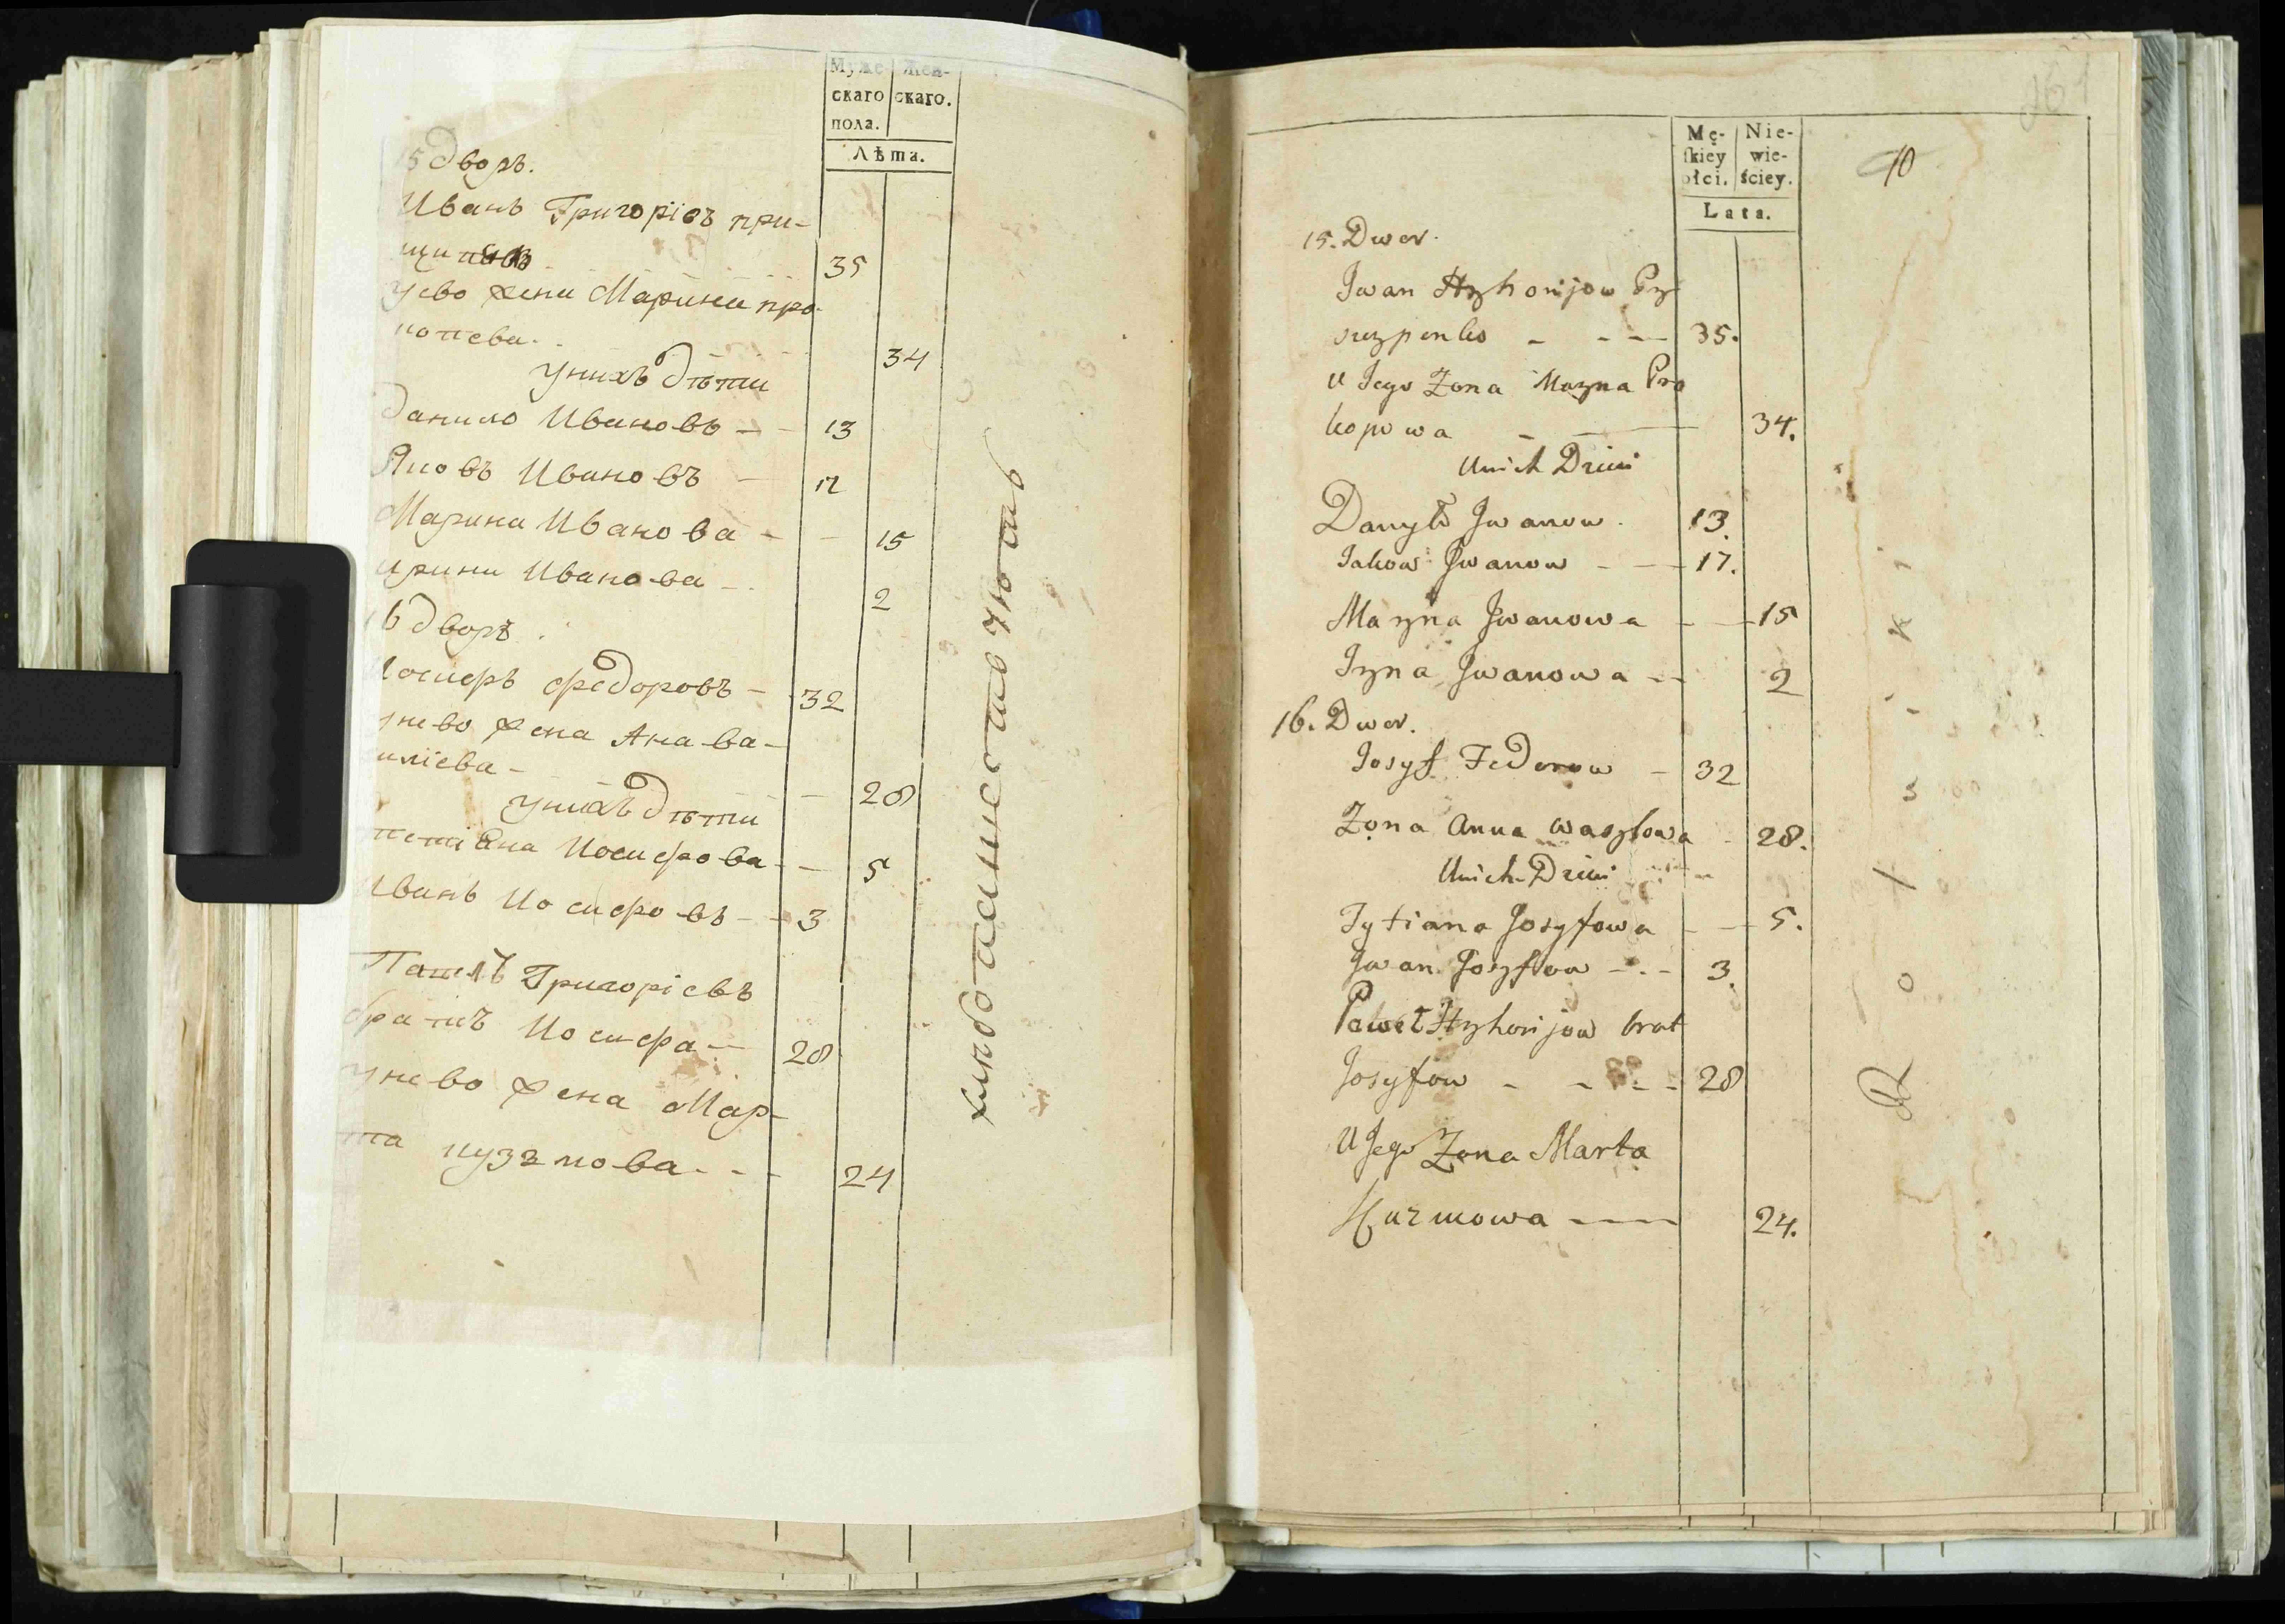 Муже- Жен-
скаго скаго.
пола.
Лѣта.
15 дворъ.
Иванъ Григоріовъ при-
35
уево жена Марина про-
копова. 34
унихъ дѣти
данило Ивановъ - - 13
Яковъ Ивановъ - 17
Марина Иванова - - 15
ирина Иванова - 2
16 дворъ.
Іосифъ федоровъ - 32
унево жена Анна ва-
иліева - - 28
унихъ дѣти
тетіяна Иосифова - - 5
Иванъ Иосифовъ - - 3
Павелъ Григоріевъ
братъ Иосифа - 28
унево жена Мар-
та кузмова - - - 24
хлѣбопашествуютъ
Mę- Nie-
ſkiey wie-
płci. ściey.
Lata.
10
15. Dwor.
Iwan Hryhorijow Pry
szczpenko - - - 35.
U Jego Żona Maryna Pro
kopowa - 34.
Unich Dzieci
Danyło Iwanow. 13.
Iakow Iwanow - - - 17.
Maryna Iwanowa - - 15
Iryna Iwanowa - - 2
16. Dwor.
Iosyf Fedorow - 32
Żona Anna Wasylowa - 28.
Unich Dzieci
Tytiana Josyfowa - - 5.
Iwan Josyfow - . - 3.
Paweł Hryhorijow brat
Josyfow - - - - 28
U Jego Żona Marta
Kuzmowa - - - 24.
Rolniki